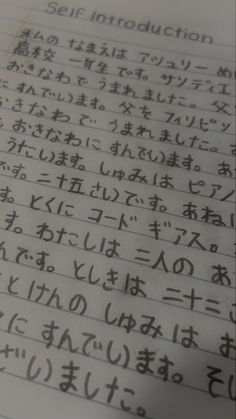 Self Introduction
私の なまえは アシュリー め
高校 一年生です。サンディエ
おきなわで うまれました。父
にすんでいます。父を フィリピン
おきなわで うまれました。
もおきなわに すんでいます。あ
うたいます。しゅみは ピアノ
です。二十五さいです。あねは
す。とくに コード ギアス。
す。わたしは 二人の あ
んです。としきは 二十三さ
とけんの しゅみは お
にすんでいます。そし
ざいました。